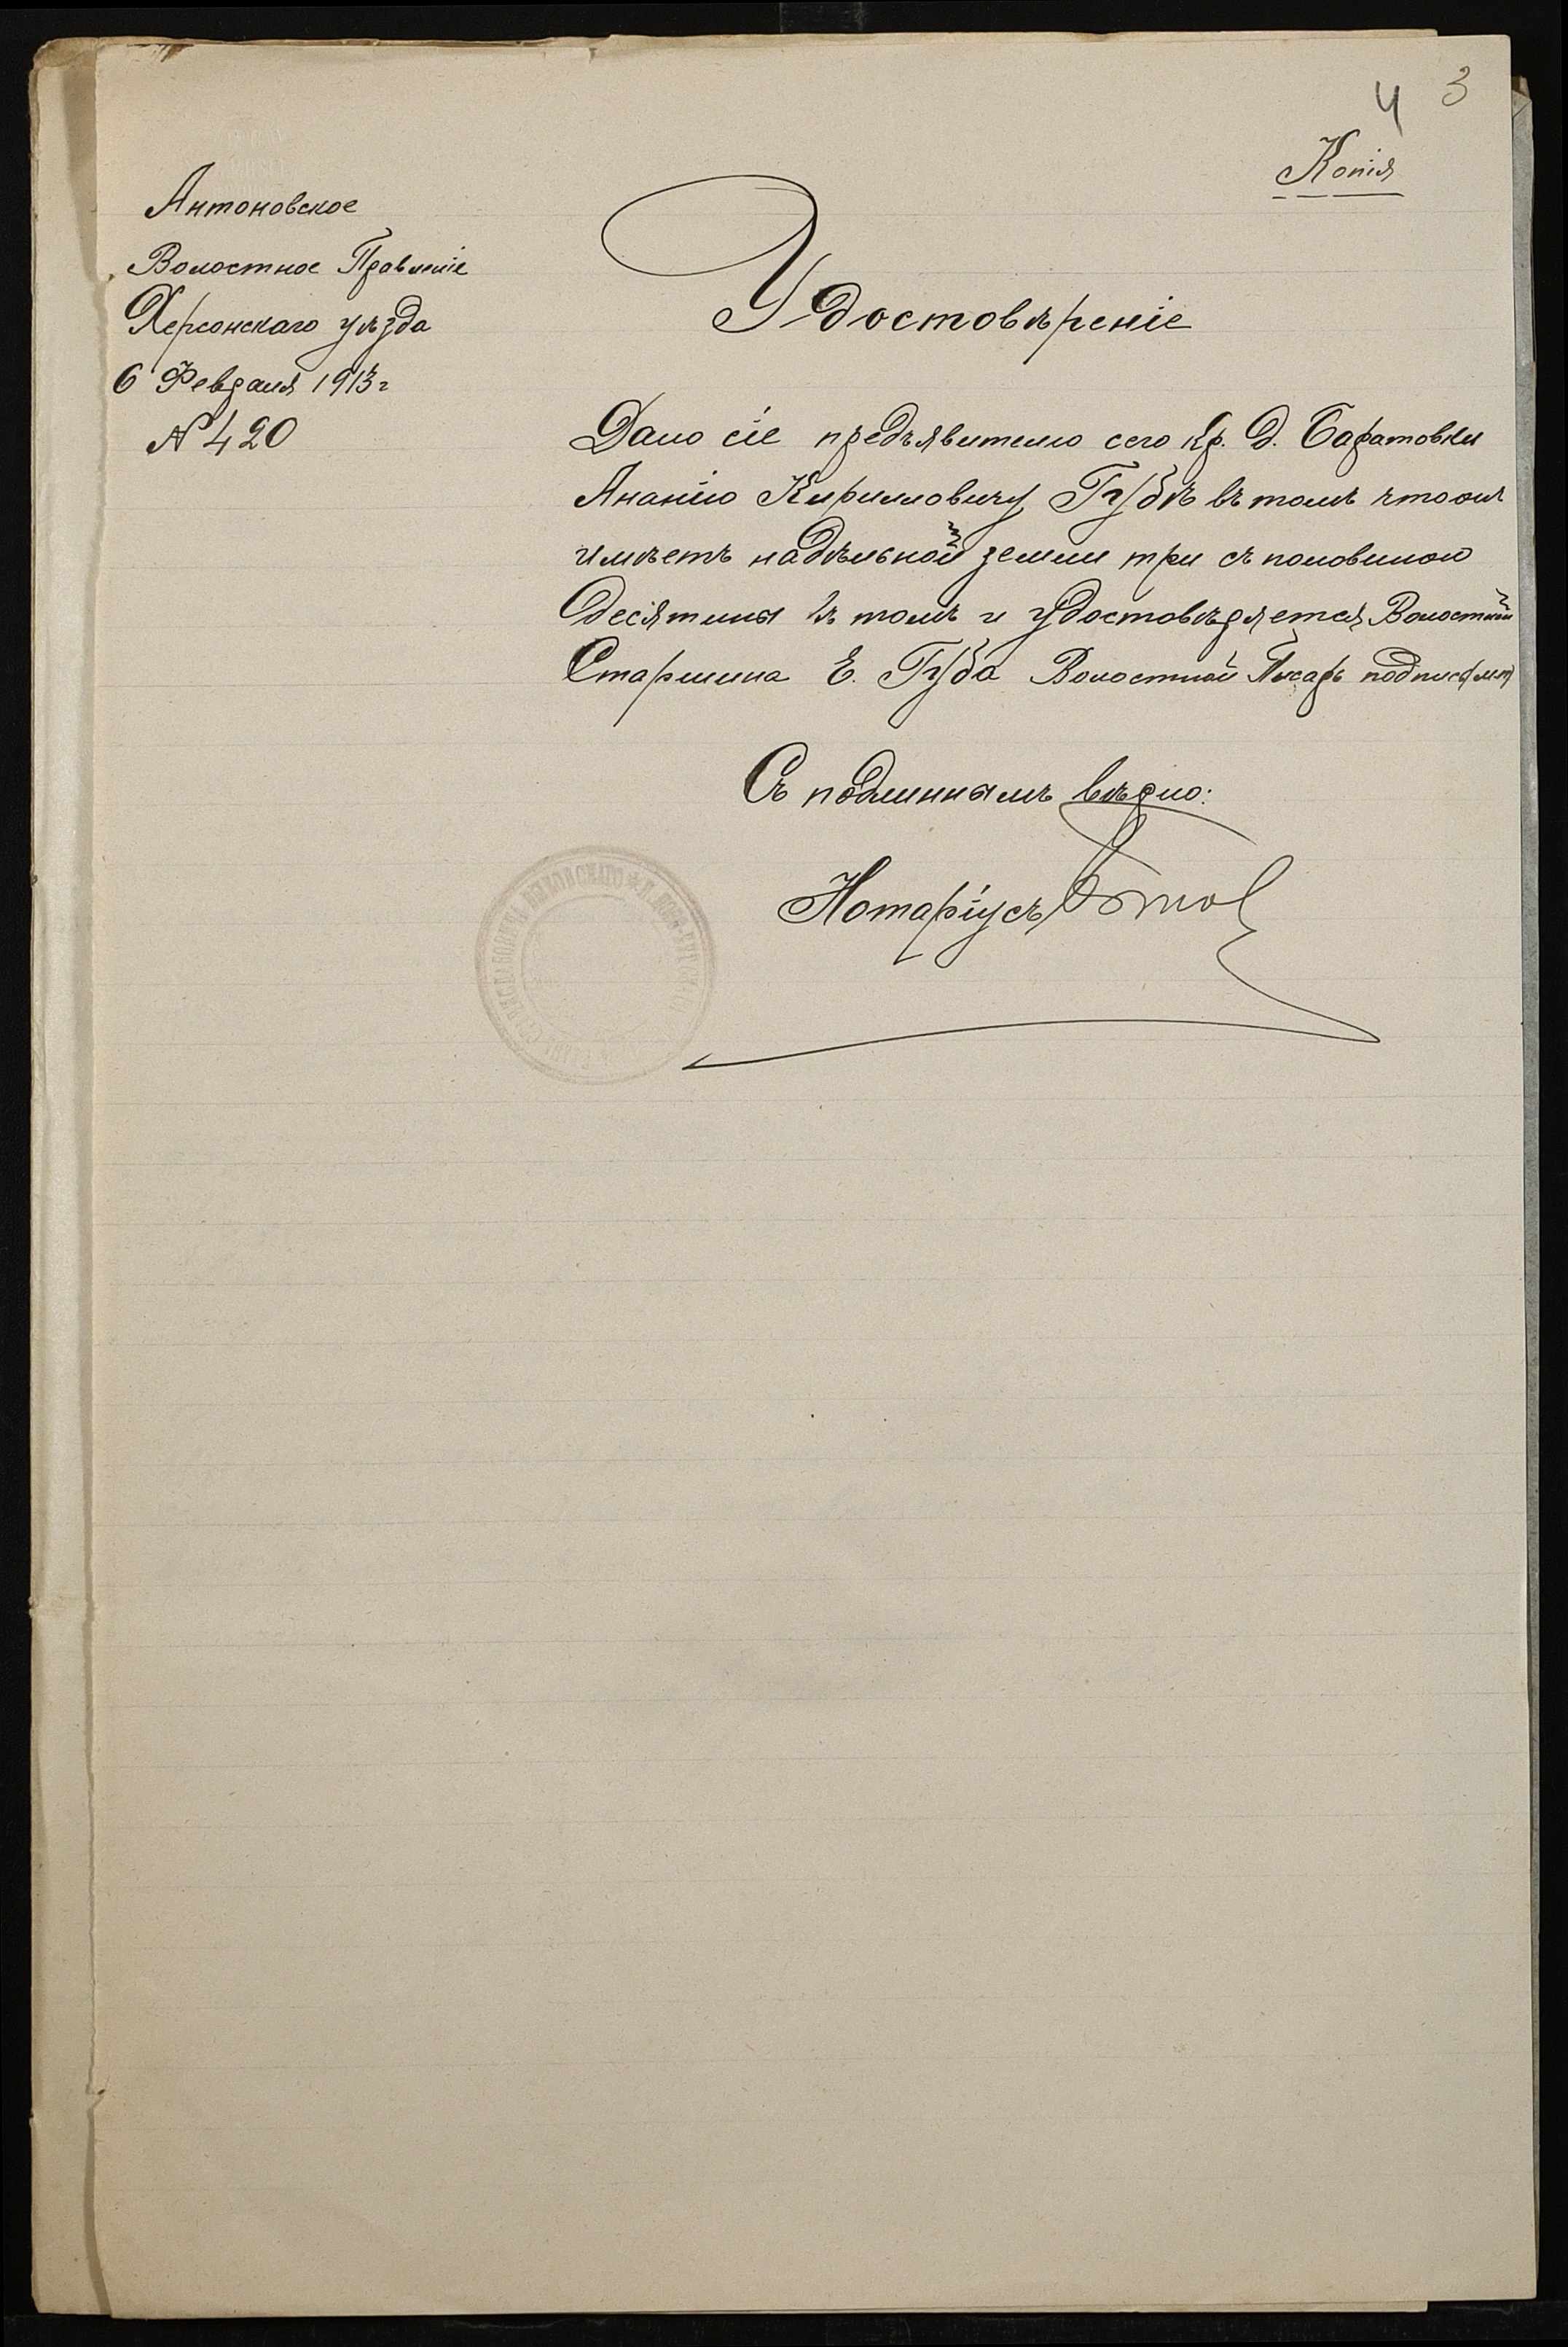 4 3
Копія
Антоновское
Волостное Правленіе
Херсонскаго уѣзда
6 Февраля 1913 г
№ 420
Удостовѣреніе
Дано сіе предъявителю сего кр. д. Баратовки
Ананію Кирилловичу Губѣ въ томъ что онъ
имѣетъ надѣльной земли три съ половиною
десятины въ томъ и удостовѣряется Волостной
Старшина Е. Губа Волостной Писарь подпись
Съ подлиннымъ вѣрно:
Нотаріусъ